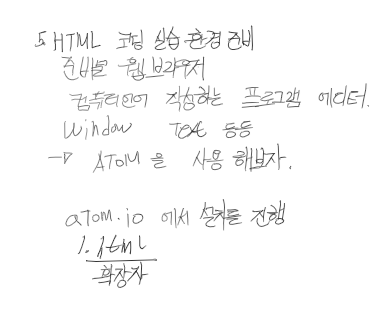 5 HTML 코딩 실습 환경 준비
준비물 웹브라우저
컴퓨터언어 작성하는 프로그램 에디터.
Window Text 등등
→ ATOM 을 사용 해보자.
atom.io 에서 설치를 진행
1. html
확장자